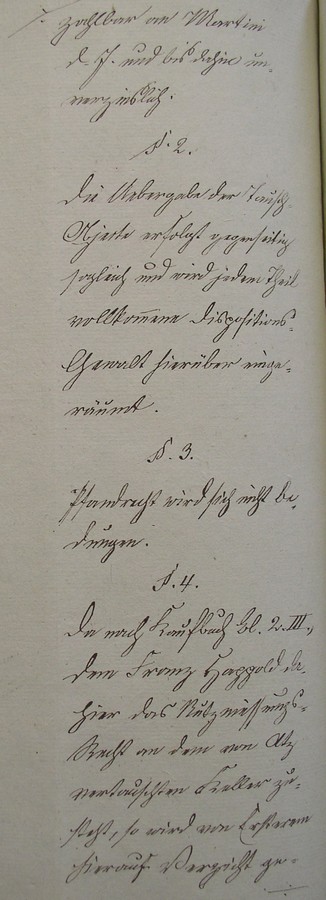 zahlbar an Martini
d. J. und bis dahin un-
verzinslich.
§. 2.
Die Uebergabe der Tausch-
Objecte erfolgt gegenseitig
sogleich und wird jedem Theil
vollkommene Dispositions-
Gewalt hierüber einge-
räumt.
§. 3.
Pfandrecht wird sich nicht be-
dungen.
§. 4.
Da nach Kaufbuch Bl. 2. III.,
dem Franz Happold da-
hier das Nutznießungs-
Recht an dem von Atz
vertauschten Keller zu-
steht, so wird von Ersterem
hierauf Verzicht ge-